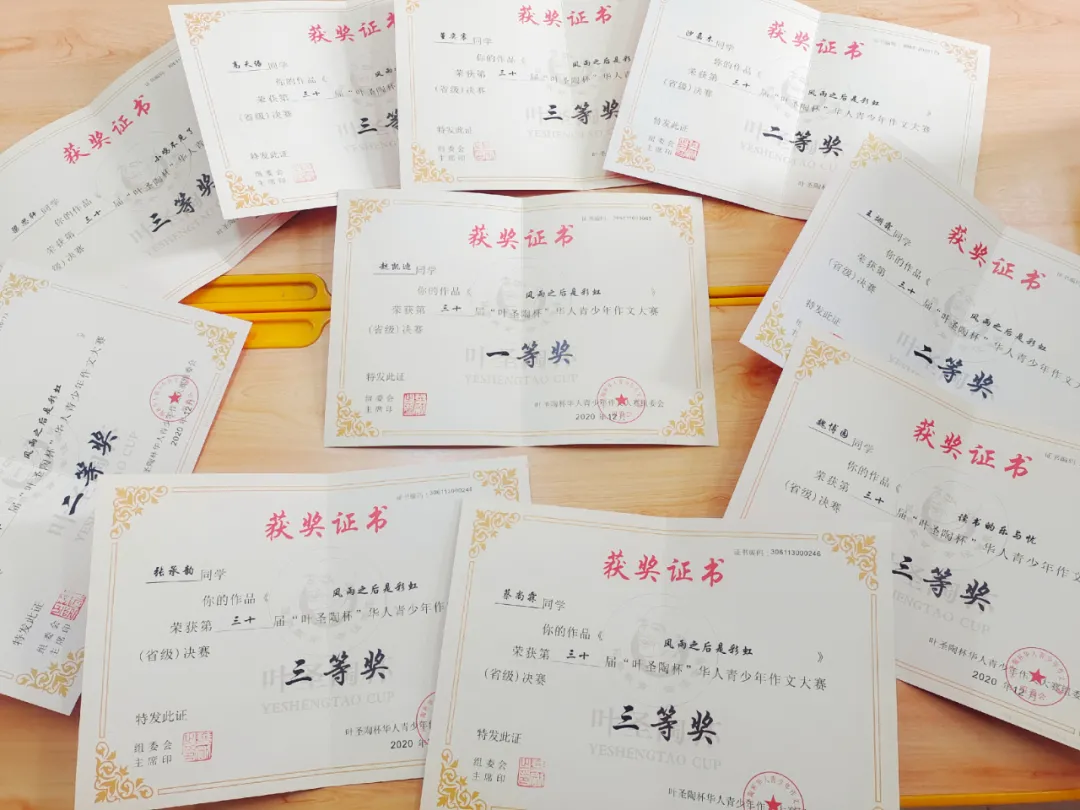 获奖证书
同学
你的作品《
小晚不见了
荣获第 三十 届"叶圣陶杯"华人青
级)决赛
三等奖
获奖证书
同学
你的作品《 风雨
荣获第 三十 届"叶圣陶杯"
(省级)决赛
三等
特发此证
组委会
主席印
获奖证书
同学
你的作品《 风雨之后是彩虹
荣获第 三十 届"叶圣陶杯"华人
(省级)决赛
三等奖
YESHENGTAO CUP
特发此证
组委会
主席印
获奖证书
沙嘉木同学
你的作品《 风雨之后是彩虹 》
荣获第 三十 届"叶圣陶杯"华人青少年作文大赛
(省级)决赛
二等奖
YESHENGTAO CUP
特发此证
组委会
主席印
叶圣陶杯
获奖证书
赵凯迪同学
你的作品《 风雨之后是彩虹 》
荣获第 三十 届"叶圣陶杯"华人青少年作文大赛
(省级)决赛
一等奖
YESHENGTAO CUP
特发此证
组委会
主席印
叶圣陶杯华人青少年作文大赛组委会
2020年12月
获奖证书
同学
你的作品《 风雨之后是彩虹
荣获第 三十 届"叶圣陶杯"华人青少年作文大
(省级)决赛
二等奖
特发此证
获奖证书
魏博园同学
你的作品《 读书的乐与忧
荣获第 三十 届"叶圣陶杯"华人青少年作文大
(省级)决赛
三等奖
SHENGTAO CUP
叶圣陶杯华人青少年作文大赛组委
2020年12月
风雨之后是彩虹 》
华人青少年作文大赛
二等奖
特发此证
组委会
主席印
2020年12月
获奖证书
证书编码:306113090245
张承韵同学
你的作品《 风雨之后是彩虹
荣获第 三十 届"叶圣陶杯"华人青少年作
(省级)决赛
三等奖
YESHENGTAO CUP
特发此证
组委会
主席印
叶圣陶杯华人青少年
2020年
获奖证书
证书编码:306113090246
蔡尚霖同学
你的作品《 风雨之后是彩虹 》
荣获第 三十 届"叶圣陶杯"华人青少年作文大赛
(省级)决赛
三等奖
YESHENGTAO CUP
特发此证
组委会
主席印
叶圣陶杯华人青少年作